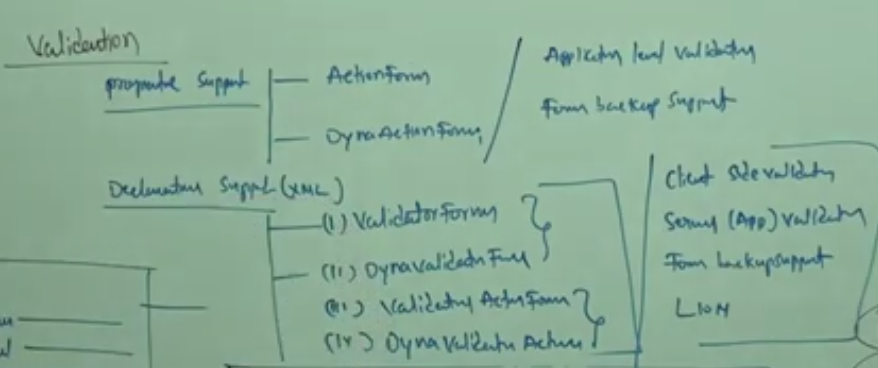 Validation
programatic Support
ActionForm
DynaActionForm
Application level validation
Form backup Support
Declarative Support (XML)
(i) ValidatorForm
(ii) DynaValidatorForm
(iii) Validator ActionForm
(iv) DynaValidator Action
Client side validation
Server (App) validation
Form backup support
I18N